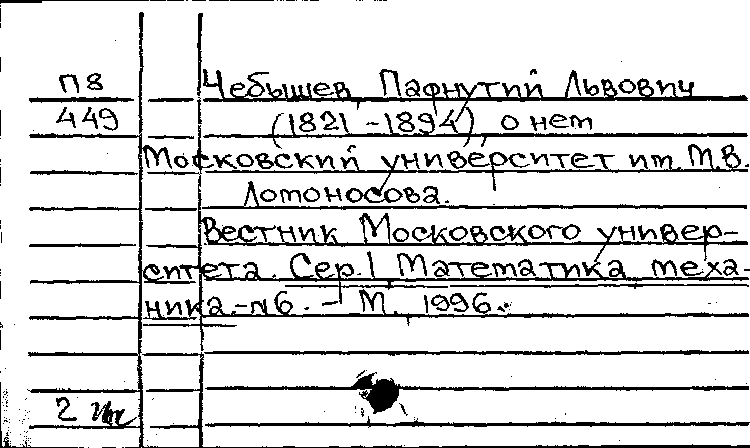 П8 Чебышев, Пафнутий Львович
449 (1821-1894), о нем
Московский университет им. М.В.
Ломоносова.
Вестник Московского универ-
ситета. Сер. 1, Математика, меха-
ника.-№6. - М., 1996.
2